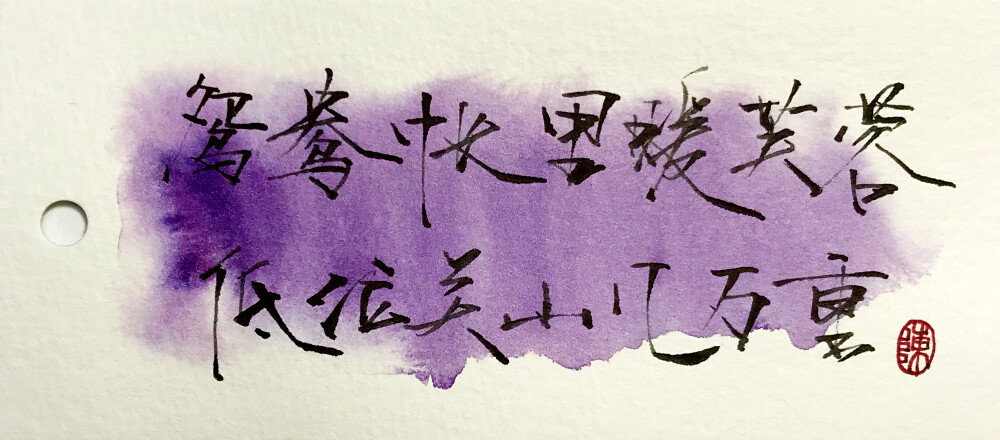 鸳鸯帐里暖芙蓉
低泣关山几万重
陳